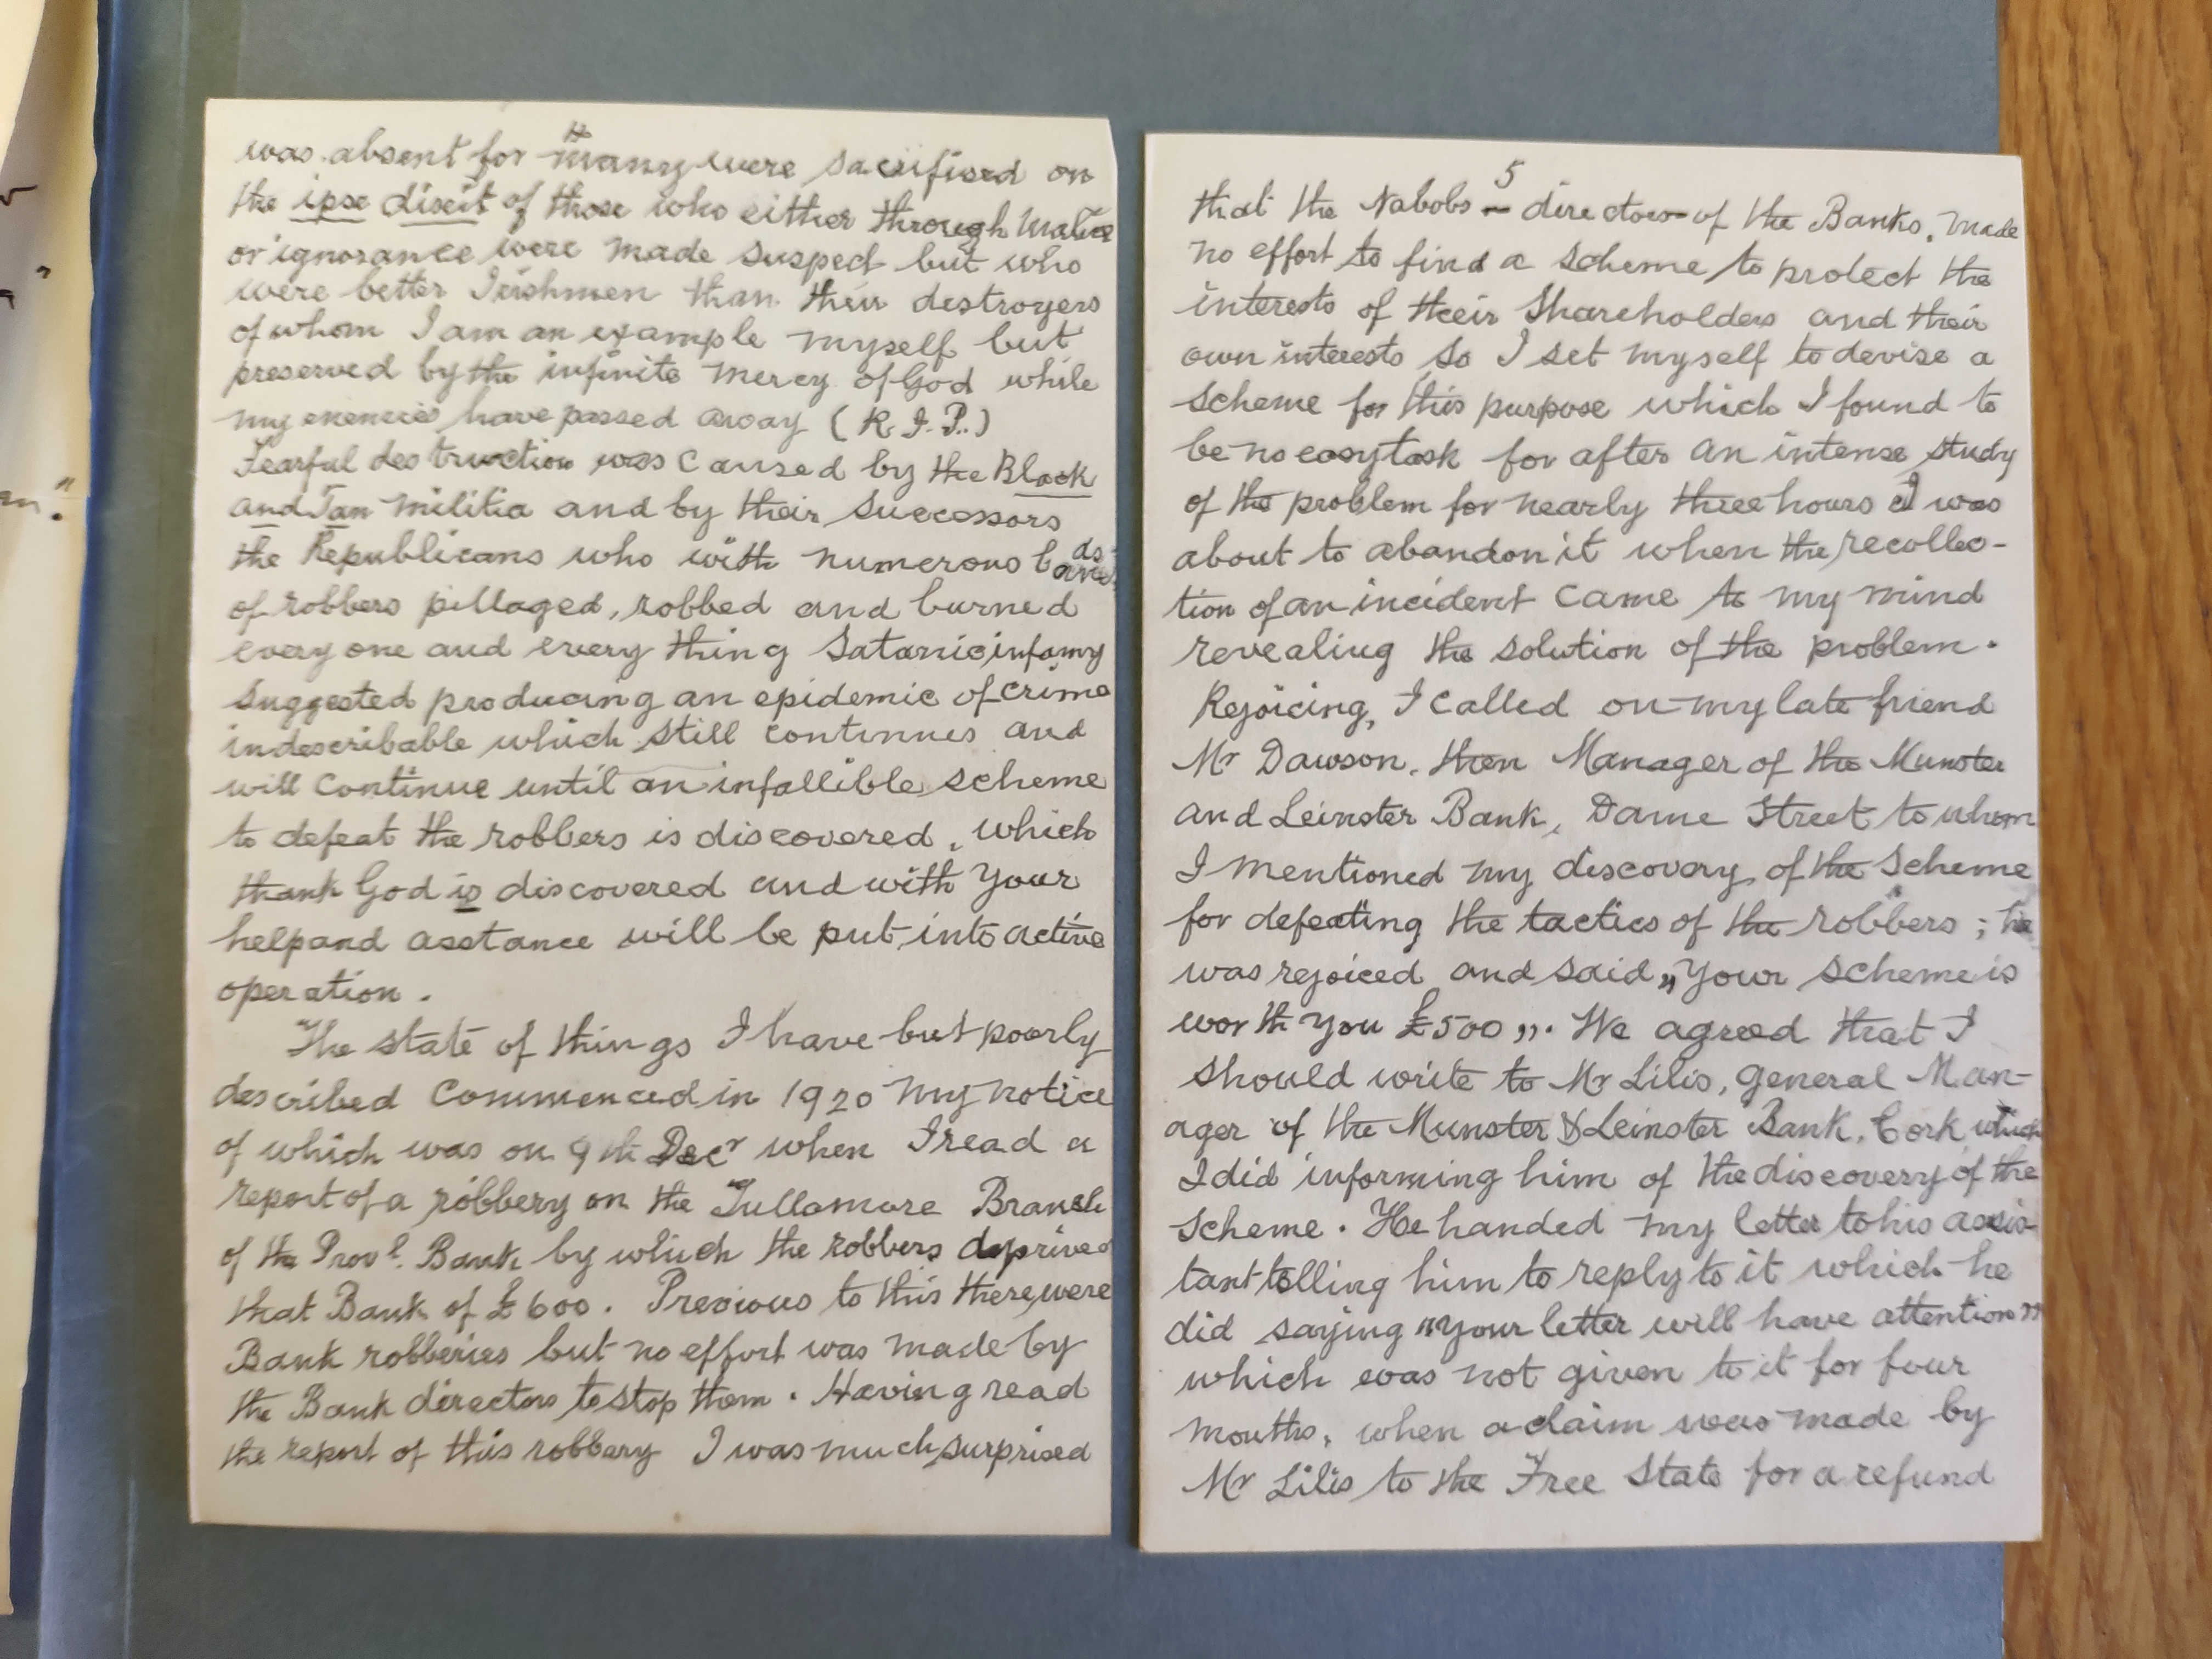 4
was absent for many were sacrifised on
the ipse dixit of those who either through malice
or ignorance were made suspect but who
were better Irishmen than their destroyers
of whom I am an example myself but
preserved by the infinite mercy of God while
my enemies have passed away (R.I.P.)
Fearful destruction was caused by the Black
and Tan militia and by their successors
the Republicans who with numerous bands
of robbers pillaged, robbed and burned
every one and every thing Satanic infamy
suggested producing an epidemic of crime
indescribable which still continues and
will continue until an infallible scheme
to defeat the robbers is discovered, which
thank God is discovered and with your
help and asstance will be put into active
operation.
The state of things I have but poorly
described commenced in 1920 my notice
of which was on 9th Decr when I read a
report of a robbery on the Tullamore Branch
of the Provl. Bank by which the robbers deprived
that Bank of £600. Previous to this there were
Bank robberies but no effort was made by
the Bank directors to stop them. Having read
the report of this robbery I was much surprised
5
that the Nabobs - directors of the Banks, made
no effort to find a scheme to protect the
interests of their Shareholders and their
own interests so I set myself to devise a
scheme for this purpose which I found to
be no easy task for after an intense study
of the problem for nearly three hours I was
about to abandon it when the recollec-
tion of an incident came to my mind
revealing the solution of the problem.
Rejoicing, I called on my late friend
Mr Dawson, then Manager of the Munster
and Leinster Bank, Dame Street to whom
I mentioned my discovery of the scheme
for defeating the tactics of the robbers; he
was rejoiced and said „Your scheme is
worth you £500”. We agreed that I
should write to Mr Lilis, General Man-
ager of the Munster & Leinster Bank, Cork which
I did informing him of the discovery of the
scheme. He handed my letter to his assis-
tant telling him to reply to it which he
did saying "your letter will have attention"
which was not given to it for four
months, when a claim was made by
Mr Lilis to the Free State for a refund